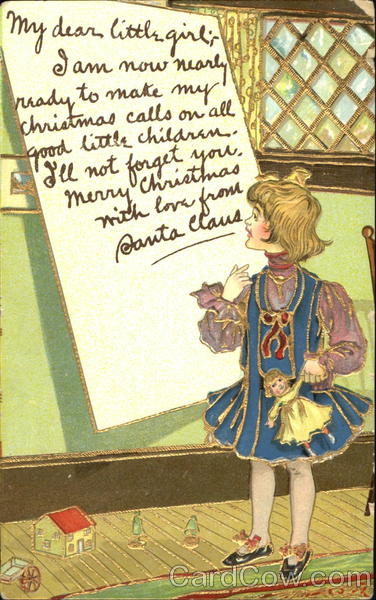 My dear little girl,-
I am now nearly
ready to make my
christmas calls on all
good little children.
I'll not forget you.
Merry Christmas
with love from
Santa Claus
CardCow.com